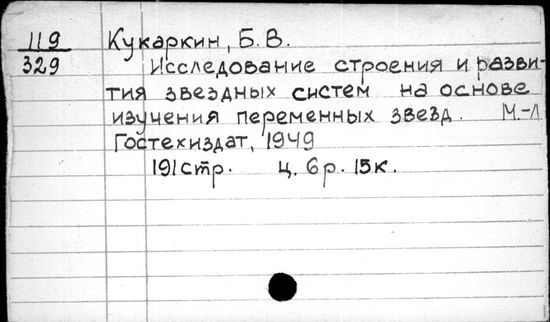 119 Кукаркин, Б. В.
329 Исследование строения и разви-
тия звездных систем на основе
изучения переменных звезд. М.-Л
Гостехиздат, 1949
191 стр. ц. 6 р. 15 к.